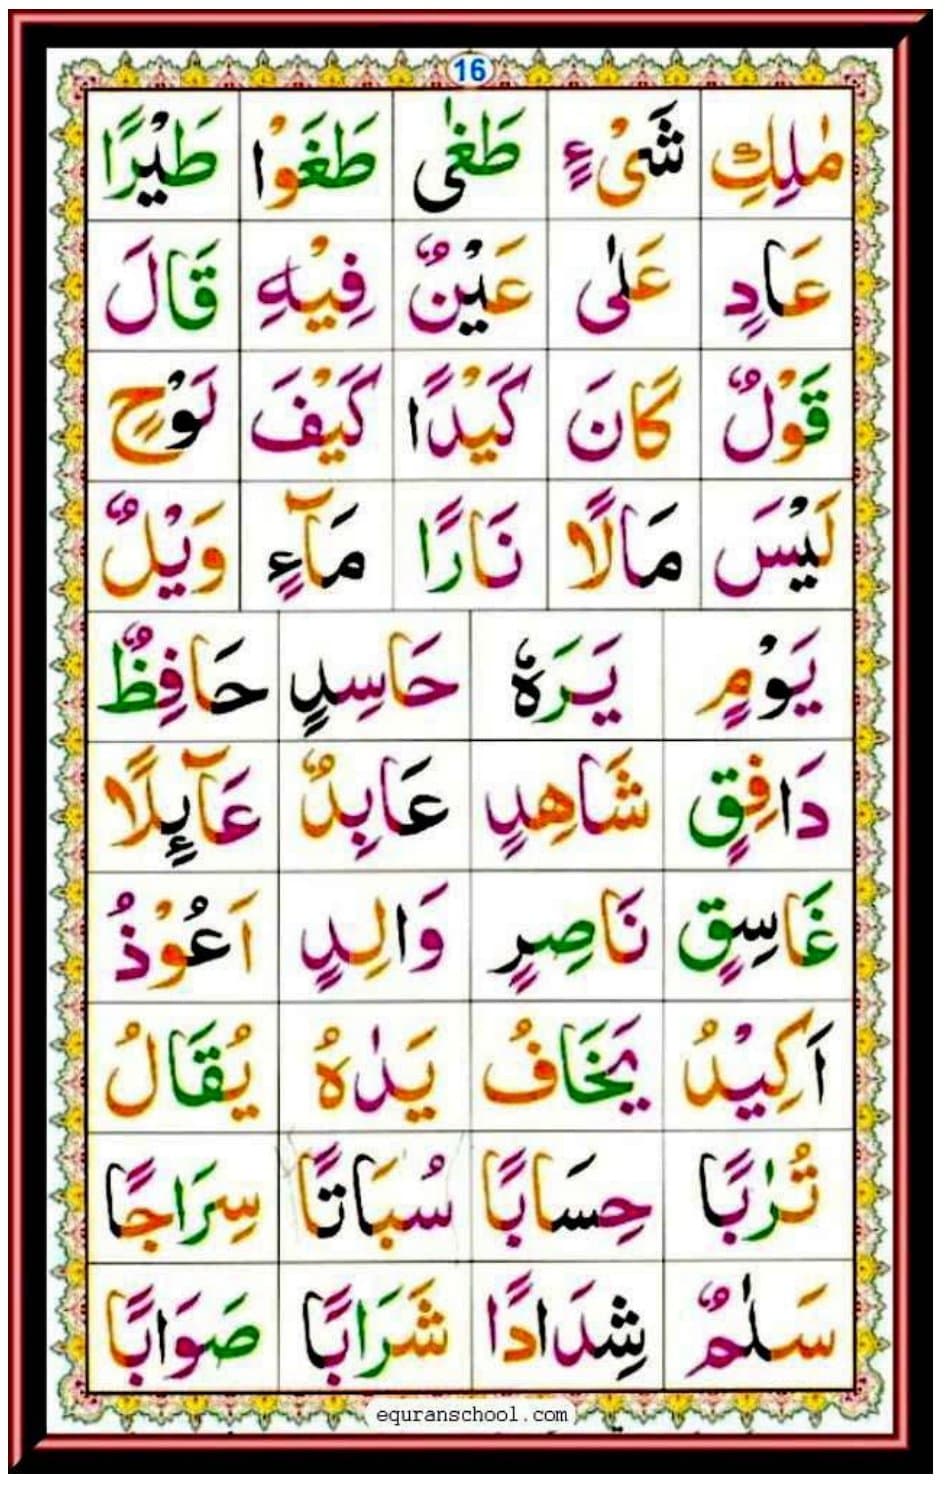 16
مٰلِكِ شَیْءٍ طَغٰی طَغَوْا طَیْرًا
عَادٍ عَلٰی عَیْنٌ فِیْهِ قَالَ
قَوْلٌ كَانَ كَیْدًا كَیْفَ لَوْحٍ
لَیْسَ مَالًا نَارًا مَآءٍ وَیْلٌ
یَوْمٍ یَرَهٗ حَاسِدٍ حَافِظٌ
دَافِقٍ شَاهِدٍ عَابِدٌ عَآىِٕلًا
غَاسِقٍ نَاصِرٍ وَالِدٍ اَعُوْذُ
اَكِیْدُ یَخَافُ یَدٰهُ یُقَالُ
تُرٰبًا حِسَابًا سُبَاتًا سِرَاجًا
سَلٰمٌ شِدَادًا شَرَابًا صَوَابًا
equranschool.com